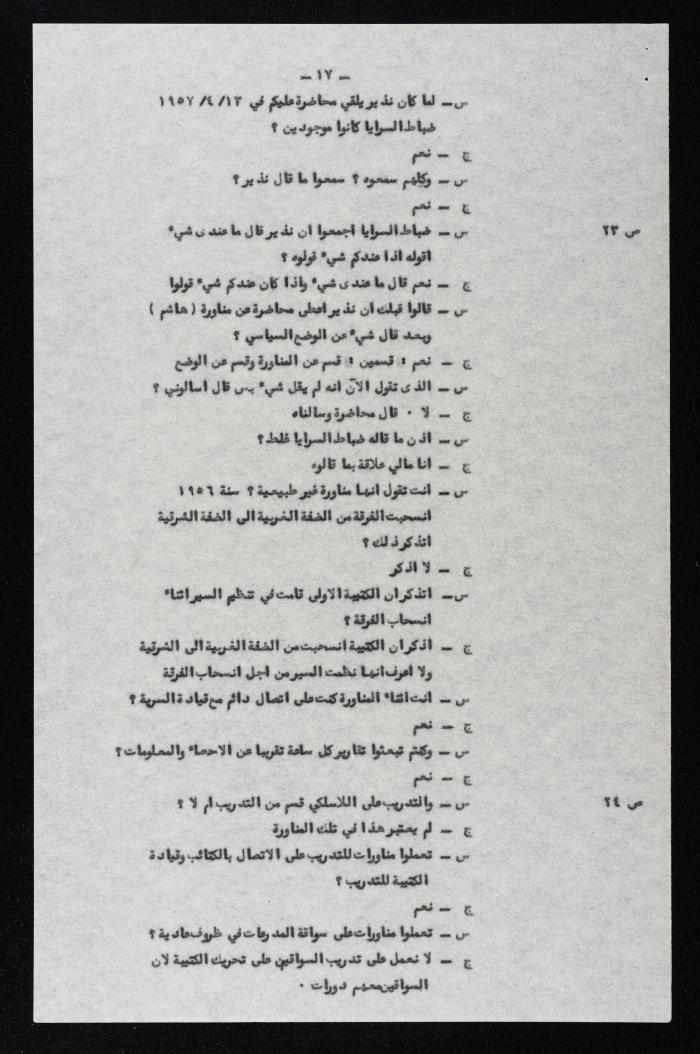 — ١٧ —
س — لما كان نذير يلقي محاضرة عليكم في ١٣/ ٤/ ١٩٥٧
ضباط السرايا كانوا موجودين ؟
ج — نعم
س — وكلهم سمعوه ؟ سمعوا ما قال نذير ؟
ج — نعم
ص ٢٣ س — ضباط السرايا اجمعوا ان نذير قال ما عندى شيء
اقوله اذا عندكم شيء قولوه ؟
ج — نعم قال ما عندى شيء واذا كان عندكم شيء قولوا
س — قالوا قبلك ان نذير اعطى محاضرة عن مناورة ( هاشم )
وبعد قال شيء عن الوضع السياسي ؟
ج — نعم : قسمين : قسم عن المناورة وقسم عن الوضع
س — الذى تقول الآن انه لم يقل شيء بس قال اسالوني ؟
ج — لا ٠ قال محاضرة وسالناه
س — اذن ما قاله ضباط السرايا غلط ؟
ج — انا مالي علاقة بما قالوه
س — انت تقول انها مناورة غير طبيعية ؟ سنة ١٩٥٦
انسحبت الفرقة من الضفة الغربية الى الضفة الشرقية
اتذكر ذلك ؟
ج — لا اذكر
س — اتذكر ان الكتيبة الاولى قامت في تنظيم السير اثناء
انسحاب الفرقة ؟
ج — اذكر ان الكتيبة انسحبت من الضفة الغربية الى الشرقية
ولا اعرف انها نظمت السير من اجل انسحاب الفرقة
س — انت اثناء المناورة كنت على اتصال دائم مع قيادة السرية ؟
ج — نعم
س — وكنتم تبعثوا تقارير كل ساعة تقريبا عن الاحصاء والمعلومات ؟
ج — نعم
ص ٢٤ س — والتدريب على اللاسلكي قسم من التدريب ام لا ؟
ج — لم يعتبر هذا في تلك المناورة
س — تعملوا مناورات للتدريب على الاتصال بالكتائب وقيادة
الكتيبة للتدريب ؟
ج — نعم
س — تعملوا مناورات على سواقة المدرعات في ظروف عادية ؟
ج — لا نعمل على تدريب السواقين على تحريك الكتيبة لان
السواقين معهم دورات ٠